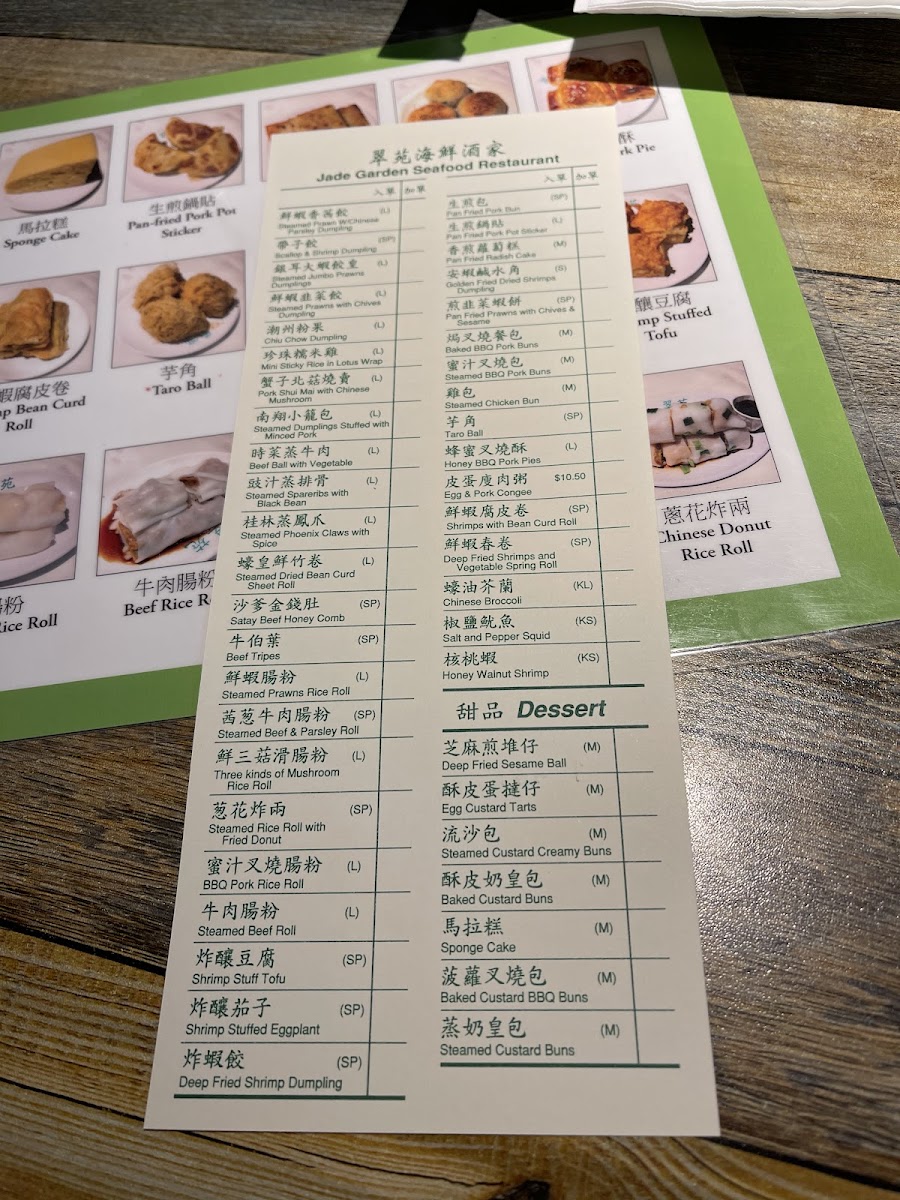 翠苑海鮮酒家
Jade Garden Seafood Restaurant
入單 加單
鮮蝦香茜餃 (L)
Steamed Prawn W/Chinese
Parsley Dumpling
帶子餃 (SP)
Scallop & Shrimp Dumpling
銀耳大蝦餃皇 (L)
Steamed Jumbo Prawns
Dumplings
鮮蝦韭菜餃 (L)
Steamed Prawns with Chives
Dumpling
潮州粉果 (L)
Chiu Chow Dumpling
珍珠糯米雞 (L)
Mini Sticky Rice in Lotus Wrap
蟹子北菇燒賣 (L)
Pork Shui Mai with Chinese
Mushroom
南翔小籠包 (L)
Steamed Dumplings Stuffed with
Minced Pork
時菜蒸牛肉 (L)
Beef Ball with Vegetable
豉汁蒸排骨 (L)
Steamed Spareribs with
Black Bean
桂林蒸鳳爪 (L)
Steamed Phoenix Claws with
Spice
蠔皇鮮竹卷 (L)
Steamed Dried Bean Curd
Sheet Roll
沙爹金錢肚 (SP)
Satay Beef Honey Comb
牛伯葉 (SP)
Beef Tripes
鮮蝦腸粉 (L)
Steamed Prawns Rice Roll
茜葱牛肉腸粉 (SP)
Steamed Beef & Parsley Roll
鮮三菇滑腸粉 (L)
Three kinds of Mushroom
Rice Roll
葱花炸兩 (SP)
Steamed Rice Roll with
Fried Donut
蜜汁叉燒腸粉 (L)
BBQ Pork Rice Roll
牛肉腸粉 (L)
Steamed Beef Roll
炸釀豆腐 (SP)
Shrimp Stuff Tofu
炸釀茄子 (SP)
Shrimp Stuffed Eggplant
炸蝦餃 (SP)
Deep Fried Shrimp Dumpling
入單 加單
生煎包 (SP)
Pan Fried Pork Bun
生煎鍋貼 (L)
Pan Fried Pork Pot Sticker
香煎蘿蔔糕 (M)
Pan Fried Radish Cake
安蝦鹹水角 (S)
Golden Fried Dried Shrimps
Dumpling
煎韭菜蝦餅 (SP)
Pan Fried Prawns with Chives &
Sesame
焗叉燒餐包 (M)
Baked BBQ Pork Buns
蜜汁叉燒包 (M)
Steamed BBQ Pork Buns
雞包 (M)
Steamed Chicken Bun
芋角 (SP)
Taro Ball
蜂蜜叉燒酥 (L)
Honey BBQ Pork Pies
皮蛋廋肉粥 $10.50
Egg & Pork Congee
鮮蝦腐皮卷 (SP)
Shrimps with Bean Curd Roll
鮮蝦春卷 (SP)
Deep Fried Shrimps and
Vegetable Spring Roll
蠔油芥蘭 (KL)
Chinese Broccoli
椒鹽魷魚 (KS)
Salt and Pepper Squid
核桃蝦 (KS)
Honey Walnut Shrimp
甜品 Dessert
芝麻煎堆仔 (M)
Deep Fried Sesame Ball
酥皮蛋撻仔 (M)
Egg Custard Tarts
流沙包 (M)
Steamed Custard Creamy Buns
酥皮奶皇包 (M)
Baked Custard Buns
馬拉糕 (M)
Sponge Cake
菠蘿叉燒包 (M)
Baked Custard BBQ Buns
蒸奶皇包 (M)
Steamed Custard Buns
馬拉糕
Sponge Cake
生煎鍋貼
Pan-fried Pork Pot
Sticker
酥
rk Pie
蝦腐皮卷
p Bean Curd
Roll
芋角
*Taro Ball
釀豆腐
mp Stuffed
Tofu
腸粉
ice Roll
牛肉腸粉
Beef Rice R
蔥花炸兩
Chinese Donut
Rice Roll